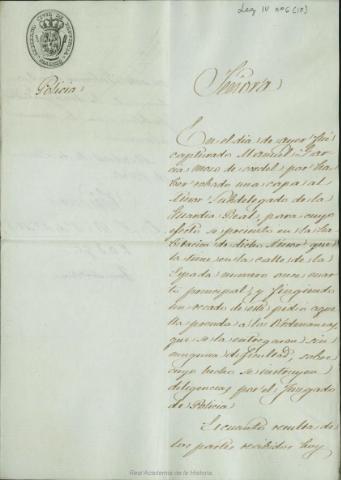 Leg IV nº 6 (18)
Policia
Señora
En el dia de ayer fué
capturado Manuel Gar-
cia mozo de cordel por ha-
ber robado una capa al
Subdelegado de la
Guardia Real, para cuyo
efecto se presentó en la ha-
bitacion de dicho que
la tiene en la calle de la
Espada numero once cuar-
to principal; y fingiendo
un recado de este pidió aque-
lla prenda a los Ordenanzas
que se la entregaron sin
ninguna dificultad, sobre
cuyo hecho se instruyen
diligencias por el Juzgado
de Policia
Es cuanto resulta de
los partes recibidos hoy
Real Academia de la Historia